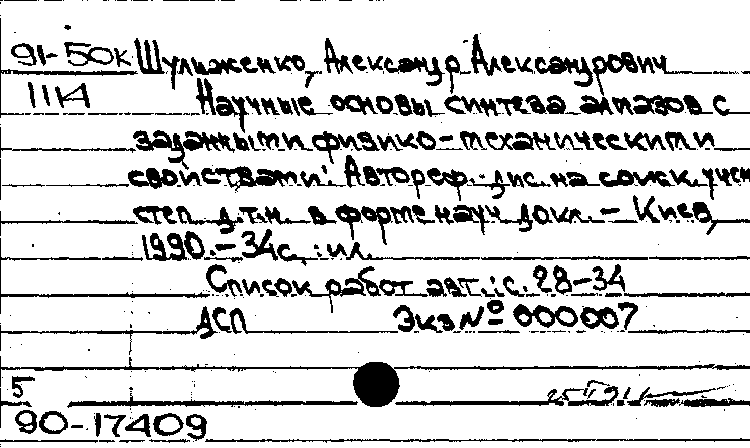 91-50к Шульженко, Александр Александрович
1114 Научные основы синтеза алмазов с
заданными физико-механическими
свойствами: Автореф. дис. на соиск. учен
степ. д.т.н. в форме науч. докл. – Киев,
1990. – 34с. : ил.
Список работ авт.: с. 28–34
ДСП Экз № 000007
5
90-17409